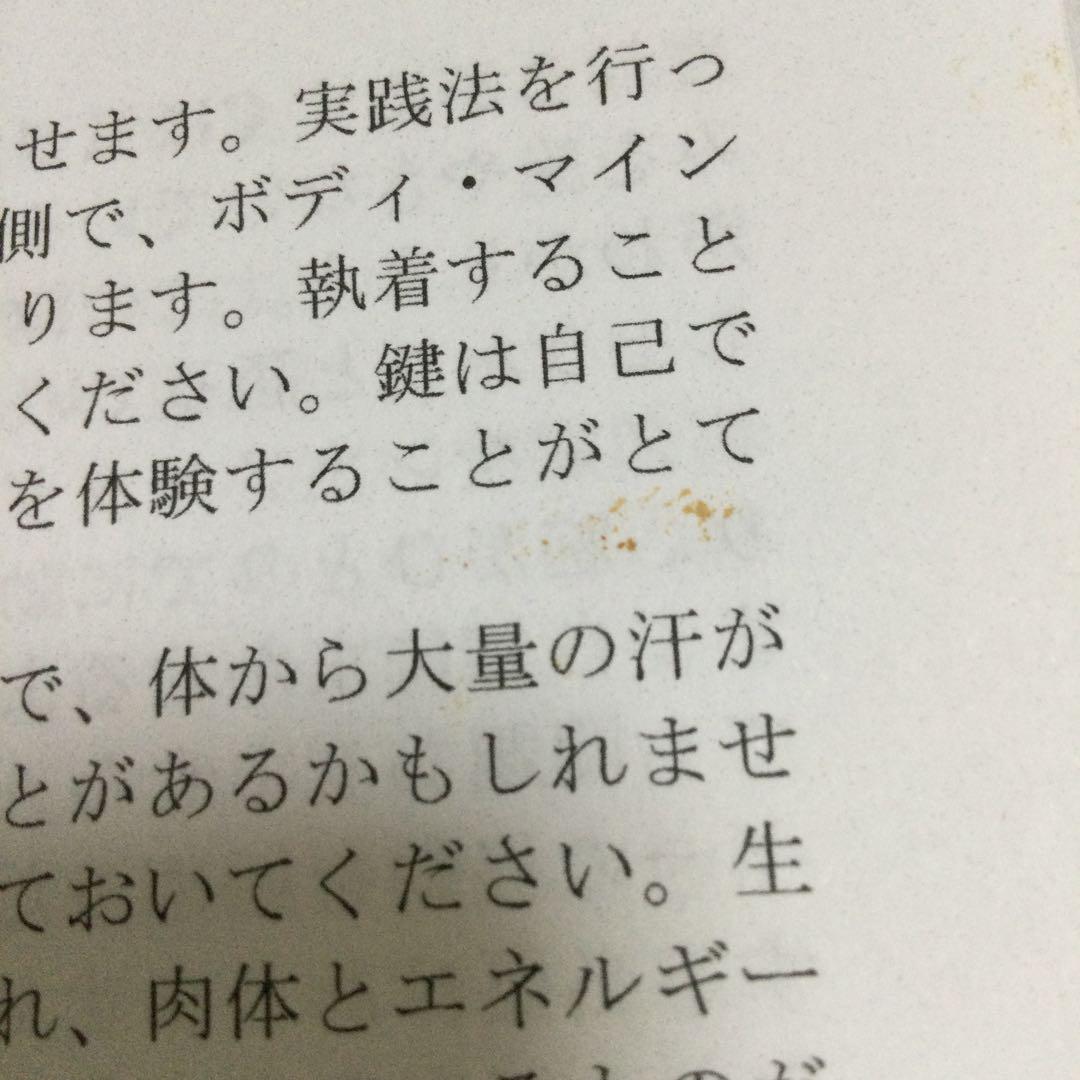 せます。実践法を行っ
側で、ボディ・マイン
ります。執着すること
ください。鍵は自己で
を体験することがとて
で、体から大量の汗が
とがあるかもしれませ
ておいてください。生
れ、肉体とエネルギー